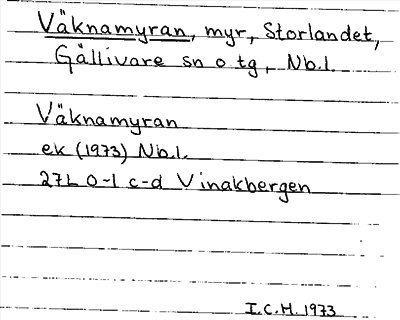 Väknamyran, myr, Storlandet,
Gällivare sn o tg, Nb.l.
Väknamyran
ek (1973) Nb.l.
27L 0-1 c-d Vinakbergen
I.C.H. 1973